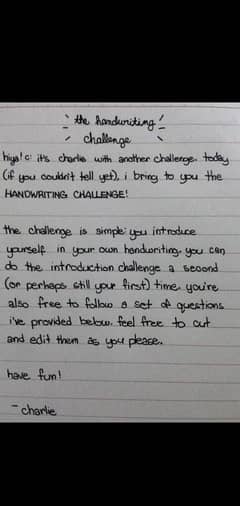 the handwriting
challenge
hiya! c: it's charlie with another challenge. today
(if you couldn't tell yet), i bring to you the
HANDWRITING CHALLENGE!
the challenge is simple: you introduce
yourself in your own handwriting. you can
do the introduction challenge a second
(or perhaps still your first) time. you're
also free to follow a set of questions
i've provided below. feel free to cut
and edit them as you please.
have fun!
- charlie